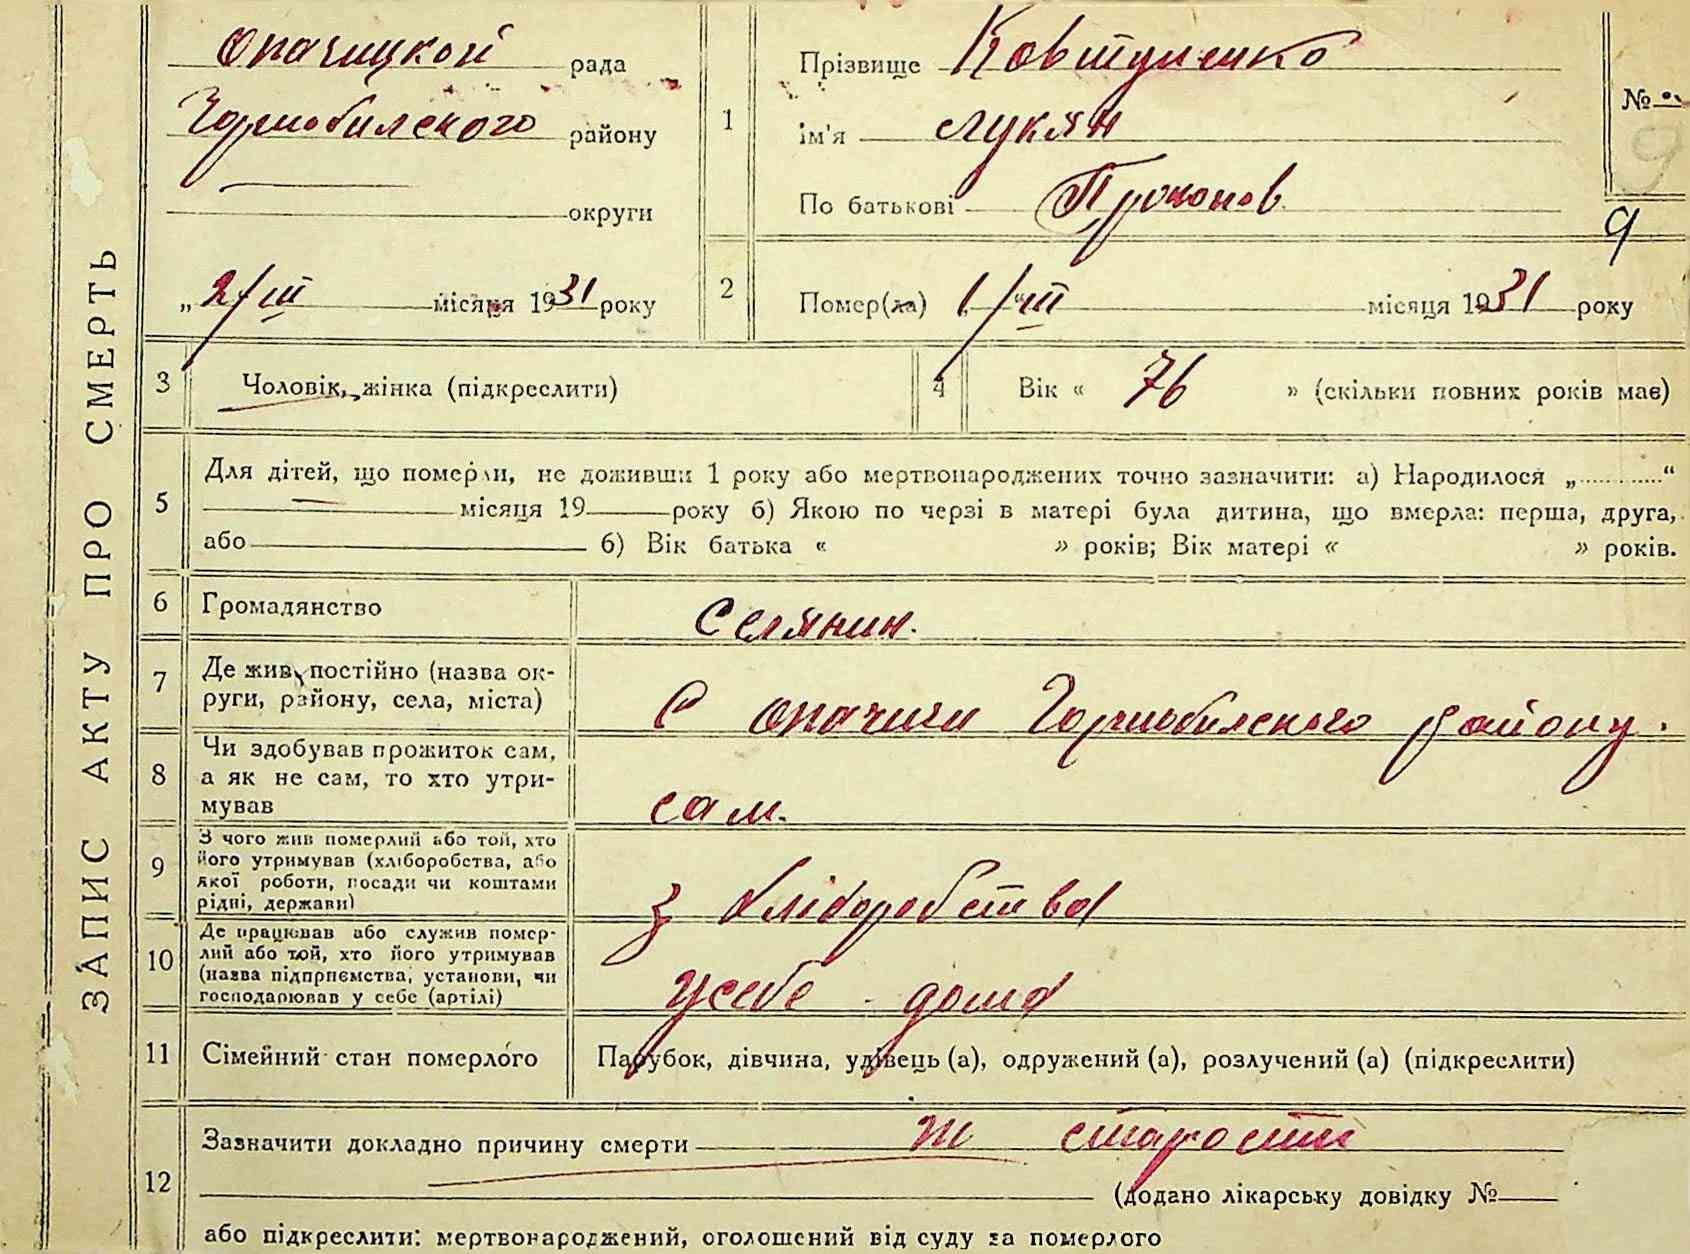 ЗАПИС АКТУ ПРО СМЕРТЬ
Опачицкой рада
Чорнобилского району
округи
„2/III місяця 1931 року
1
Прізвище Ковтуненко
ім'я Лукян
По батькові Прокопов
№
9
2
Помер(ла) 1/III місяця 1931 року
3
Чоловік, жінка (підкреслити)
4
Вік « 76 » (скільки повних років має)
5
Для дітей, що померли, не доживши 1 року або мертвонароджених точно зазначити: а) Народилося „............“
місяця 19 року б) Якою по черзі в матері була дитина, що вмерла: перша, друга,
або б) Вік батька « » років; Вік матері « » років.
6
Громадянство
Селянин.
7
Де жив постійно (назва ок-
руги, району, села, міста)
С Опачичи Чорнобилского району.
8
Чи здобував прожиток сам,
а як не сам, то хто утри-
мував
сам.
9
З чого жив померлий або той, хто
його утримував (хліборобства, або
якої роботи, посади чи коштами
рідні, держави)
з хліборобства
10
Де працював або служив помер-
лий або той, хто його утримував
(назва підприємства, установи, чи
господарював у себе (артілі)
усебе дома
11
Сімейний стан померлого
Парубок, дівчина, удівець (а), одружений (а), розлучений (а) (підкреслити)
12
Зазначити докладно причину смерти старости
(додано лікарську довідку №
або підкреслити: мертвонароджений, оголошений від суду за померлого